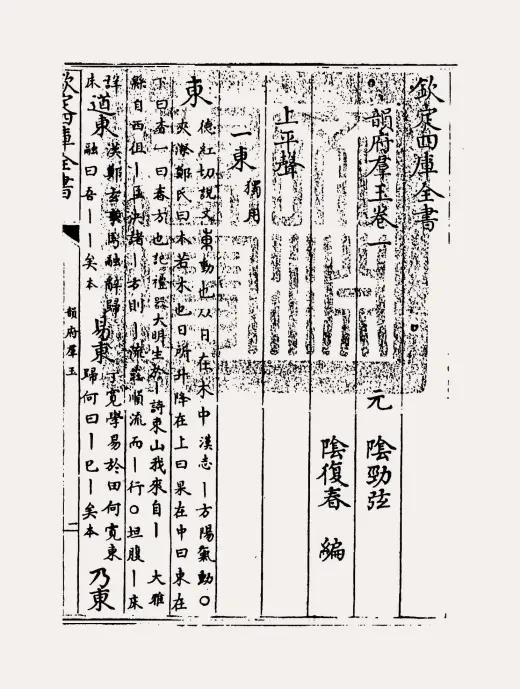 欽定四庫全書
韻府羣玉卷一
元 陰勁弦
陰復春 編
上平聲
一東 獨用
東 德紅切說文東動也从日在木中漢志丨方陽氣動〇
夾漈鄭氏曰木若木也日所升降在上曰杲在中曰東在
下曰杳一曰春方也記禮器大明生於丨詩東山我來自丨 大雅
緜自西徂丨孟決諸丨方則丨流莊順流而丨行〇坦腹丨床
詳
床 道東 漢鄭玄事馬融辭歸
融曰吾丨丨矣本 易東 丁寬學易於田何寬東
歸何曰丨已丨矣本 乃東
韻府羣玉
欽定四庫全書